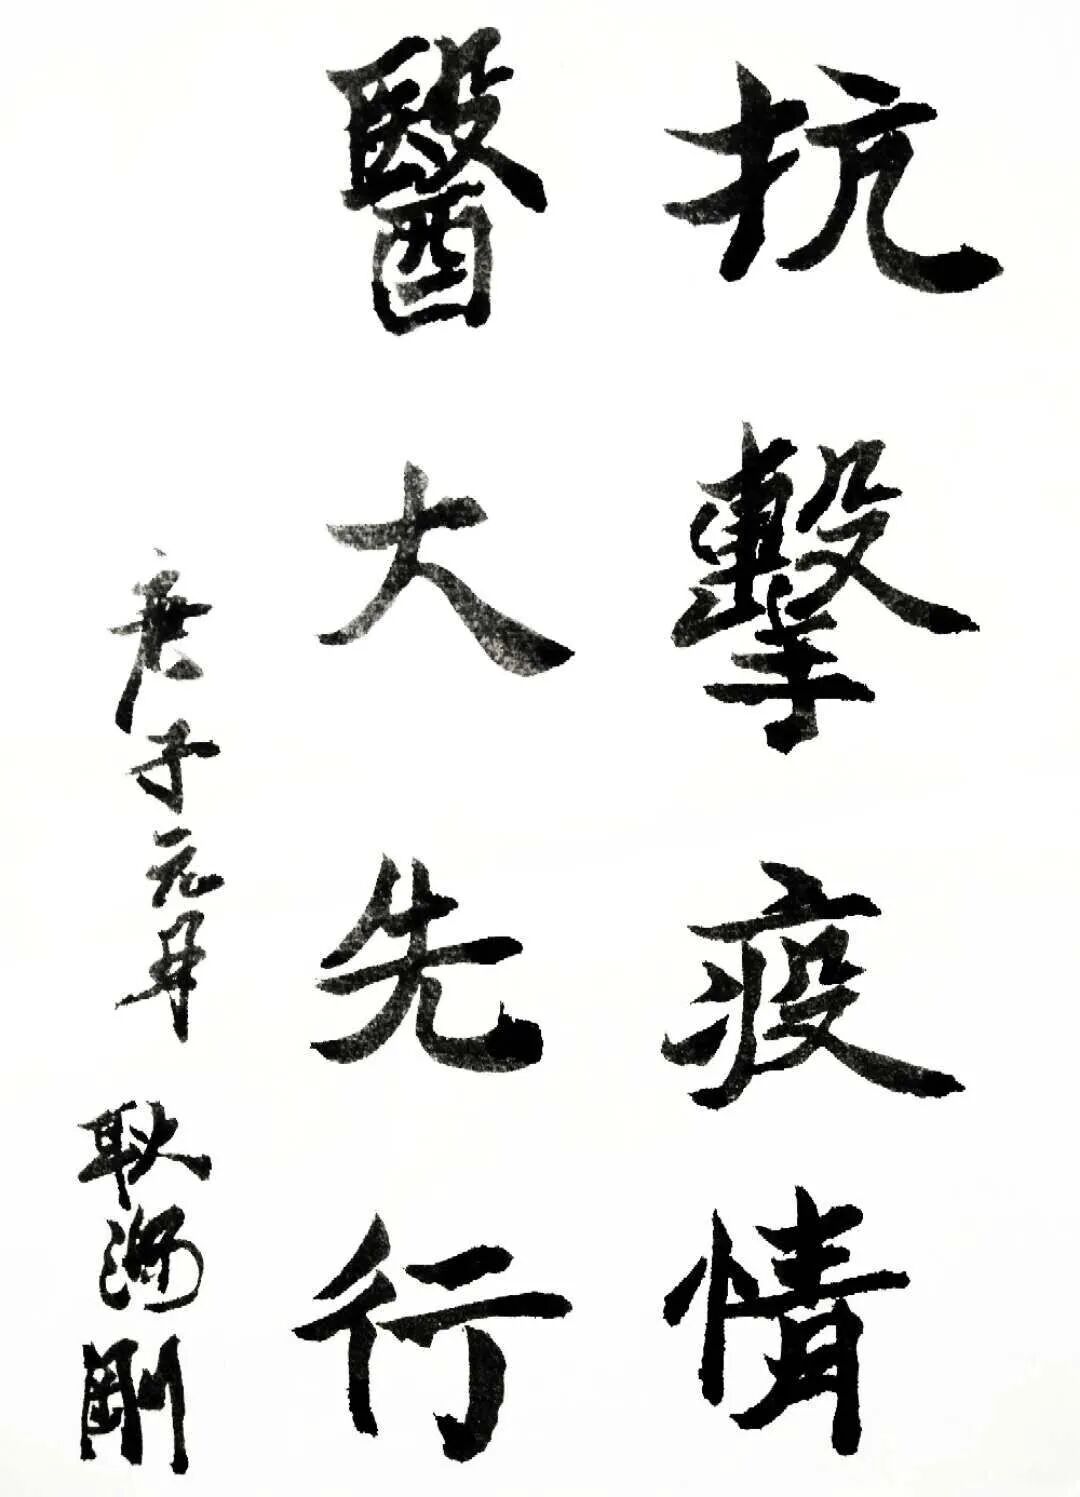 抗擊疫情
醫大先行
庚子元月
耿 剛